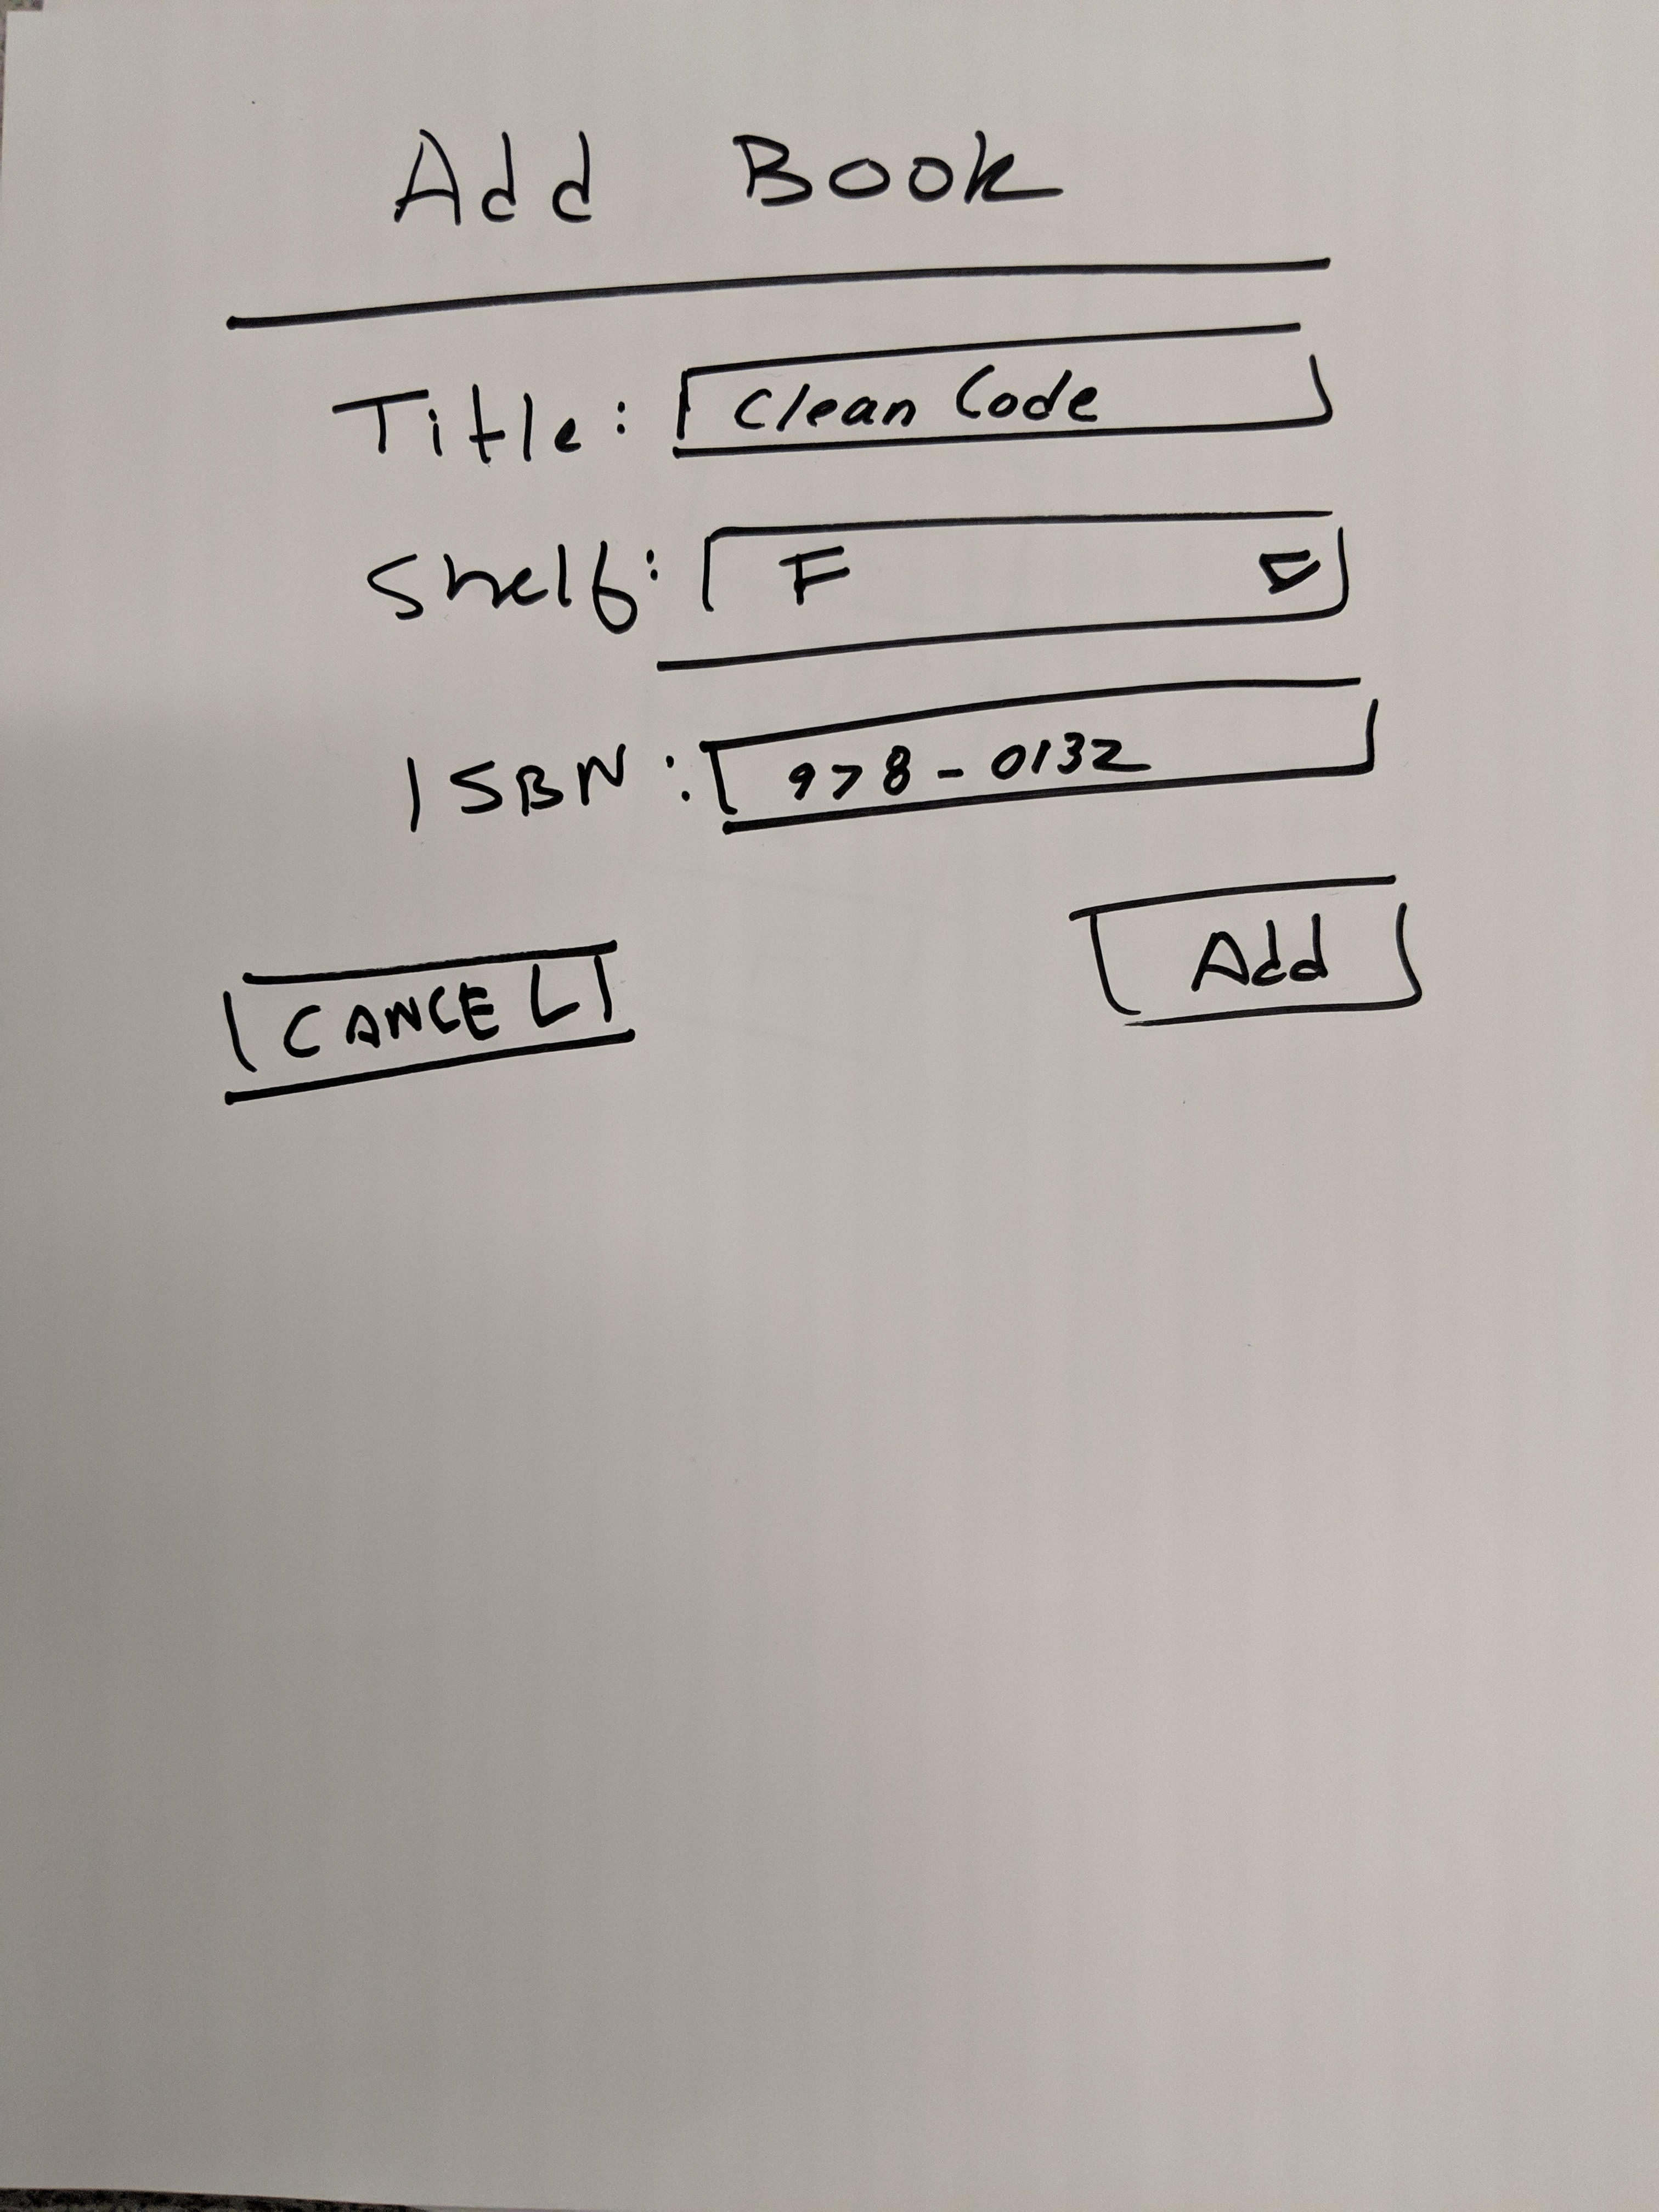 Add Book
Title: Clean Code
Shelf: F
ISBN: 978-0132
CANCEL Add